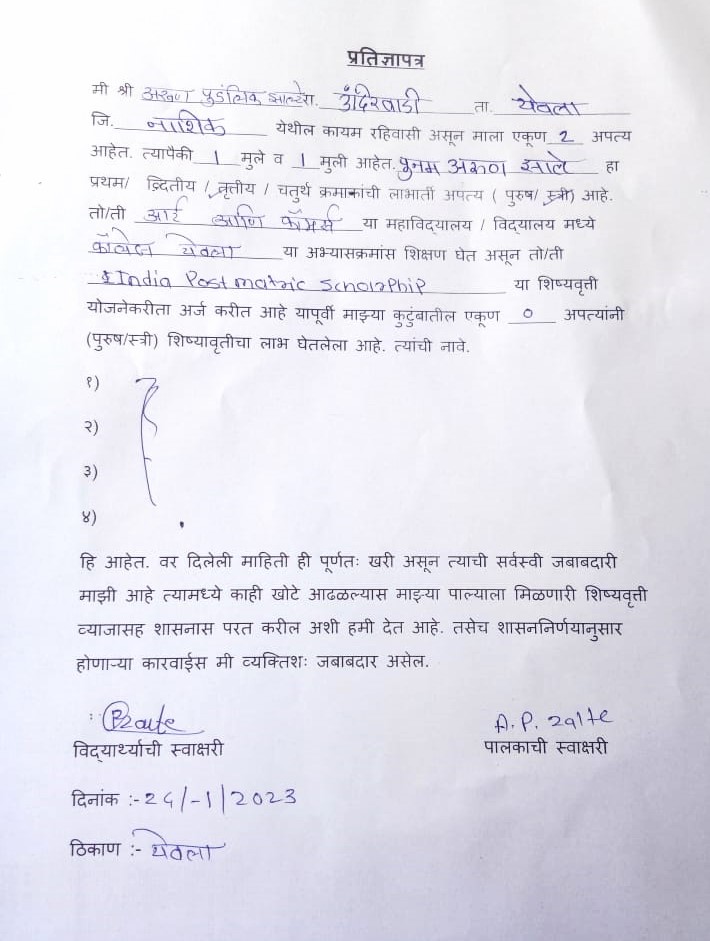 प्रतिज्ञापत्र
मी श्री अरुण पुडंलिक झाल्टे रा. उंदिरवाडी ता. येवला
जि. नाशिक येथील कायम रहिवासी असून माला एकूण 2 अपत्य
आहेत. त्यापैकी 1 मुले व 1 मुली आहेत. पुनम अरुण झाल्टे हा
प्रथम/ द्वितीय / तृत्तीय / चतुर्थ क्रमाकांची लाभार्ता अपत्य ( पुरुष/ स्त्री) आहे.
तो/ती आर्ट आणि कॉमर्स या महाविद्यालय / विद्यालय मध्ये
कॉलेज येवला या अभ्यासक्रमांस शिक्षण घेत असून तो/ती
India Post matric Scholrphip या शिष्यवृत्ती
योजनेकरीता अर्ज करीत आहे यापूर्वी माझ्या कुटुंबातील एकूण 0 अपत्यांनी
(पुरुष/स्त्री) शिष्यावृतीचा लाभ घेतलेला आहे. त्यांची नावे.
१)
२)
३)
४)
हि आहेत. वर दिलेली माहिती ही पूर्णतः खरी असून त्याची सर्वस्वी जबाबदारी
माझी आहे त्यामध्ये काही खोटे आढळल्यास माझ्या पाल्याला मिळणारी शिष्यवृत्ती
व्याजासह शासनास परत करील अशी हमी देत आहे. तसेच शासननिर्णयानुसार
होणाऱ्या कारवाईस मी व्यक्तिशः जबाबदार असेल.
A. P. zalte
विद्यार्थ्याची स्वाक्षरी पालकाची स्वाक्षरी
दिनांक :- 24/-1/2023
ठिकाण :- येवला